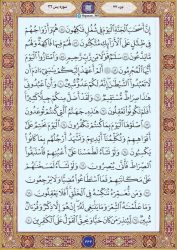 سورة يس ٣٦
جزء ٢٣
إِنَّ أَصْحَٰبَ ٱلْجَنَّةِ ٱلْيَوْمَ فِى شُغُلٍ فَٰكِهُونَ ٥٥ هُمْ وَأَزْوَٰجُهُمْ
فِى ظِلَٰلٍ عَلَى ٱلْأَرَآئِكِ مُتَّكِـُٔونَ ٥٦ لَهُمْ فِيهَا فَٰكِهَةٌ وَلَهُم
مَّا يَدَّعُونَ ٥٧ سَلَٰمٌ قَوْلًا مِّن رَّبٍّ رَّحِيمٍ ٥٨ وَٱمْتَٰزُوا۟ ٱلْيَوْمَ
أَيُّهَا ٱلْمُجْرِمُونَ ٥٩ أَلَمْ أَعْهَدْ إِلَيْكُمْ يَٰبَنِىٓ ءَادَمَ أَن
لَّا تَعْبُدُوا۟ ٱلشَّيْطَٰنَ إِنَّهُۥ لَكُمْ عَدُوٌّ مُّبِينٌ ٦٠ وَأَنِ ٱعْبُدُونِى
هَٰذَا صِرَٰطٌ مُّسْتَقِيمٌ ٦١ وَلَقَدْ أَضَلَّ مِنكُمْ جِبِلًّا كَثِيرًا
أَفَلَمْ تَكُونُوا۟ تَعْقِلُونَ ٦٢ هَٰذِهِۦ جَهَنَّمُ ٱلَّتِى كُنتُمْ تُوعَدُونَ
٦٣ ٱصْلَوْهَا ٱلْيَوْمَ بِمَا كُنتُمْ تَكْفُرُونَ ٦٤ ٱلْيَوْمَ نَخْتِمُ عَلَىٰٓ
أَفْوَٰهِهِمْ وَتُكَلِّمُنَآ أَيْدِيهِمْ وَتَشْهَدُ أَرْجُلُهُم بِمَا كَانُوا۟
يَكْسِبُونَ ٦٥ وَلَوْ نَشَآءُ لَطَمَسْنَا عَلَىٰٓ أَعْيُنِهِمْ فَٱسْتَبَقُوا۟
ٱلصِّرَٰطَ فَأَنَّىٰ يُبْصِرُونَ ٦٦ وَلَوْ نَشَآءُ لَمَسَخْنَٰهُمْ
عَلَىٰ مَكَانَتِهِمْ فَمَا ٱسْتَطَٰعُوا۟ مُضِيًّا وَلَا يَرْجِعُونَ
٦٧ وَمَن نُّعَمِّرْهُ نُنَكِّسْهُ فِى ٱلْخَلْقِ أَفَلَا يَعْقِلُونَ ٦٨
وَمَا عَلَّمْنَٰهُ ٱلشِّعْرَ وَمَا يَنۢبَغِى لَهُۥٓ إِنْ هُوَ إِلَّا ذِكْرٌ وَقُرْءَانٌ مُّبِينٌ
٦٩ لِّيُنذِرَ مَن كَانَ حَيًّا وَيَحِقَّ ٱلْقَوْلُ عَلَى ٱلْكَٰفِرِينَ ٧٠
٤٤٤